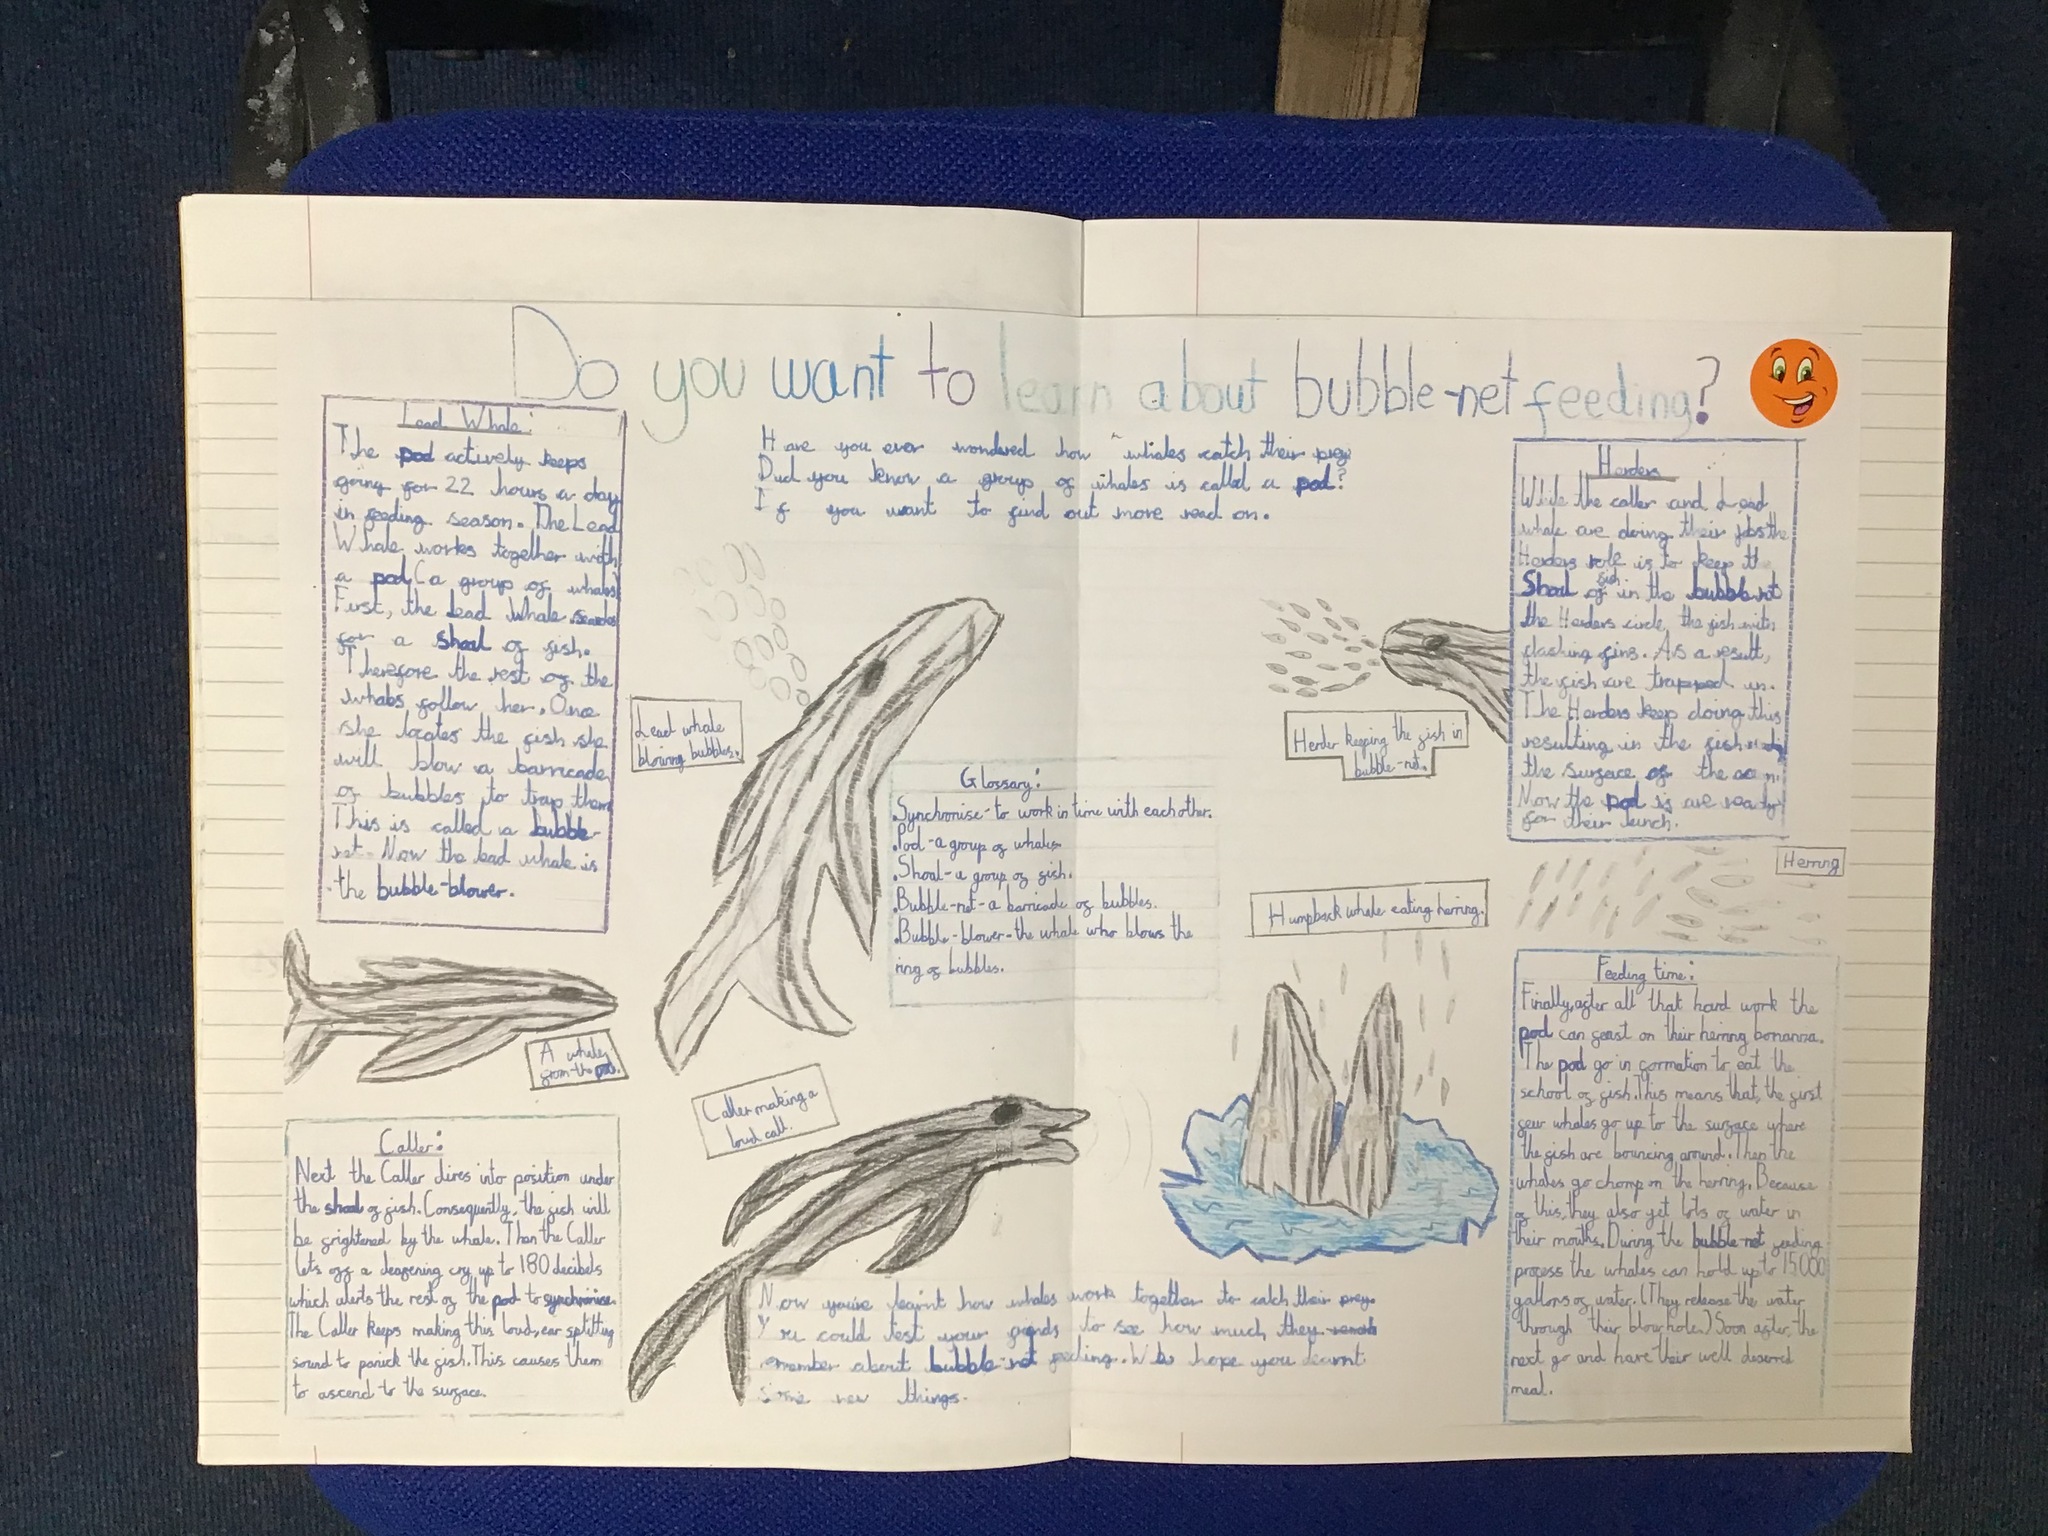 Do you want to learn about bubble-net feeding?
Have you ever wondered how whales catch their prey
Did you know a group of whales is called a pod?
If you want to find out more read on.
Lead Whale:
The pod actively keeps
going for 22 hours a day
in feeding season. The Lead
Whale works together with
a pod (a group of whales)
First, the Lead Whale
for a shoal of fish.
Therefore the rest of the
whales follow her. Once
she locates the fish she
will blow a barricade
of bubbles to trap them
This is called a bubble-
net. Now the lead whale is
the bubble-blower.
Lead whale
blowing bubbles.
A whale
from the pod.
Caller:
Next the Caller dives into position under
the shoal of fish. Consequently, the fish will
be frightened by the whale. Then the Caller
lets off a deafening cry up to 180 decibels
which alerts the rest of the pod to synchronise.
The Caller keeps making this loud, ear splitting
sound to panick the fish. This causes them
to ascend to the surface.
Caller making a
loud call.
Glossary:
.Synchronise- to work in time with each other.
.Pod - a group of whales
.Shoal - a group of fish.
.Bubble-net - a barricade of bubbles.
.Bubble-blower - the whale who blows the
ring of bubbles.
Now you've learnt how whales work together to catch their prey.
You could test your friends to see how much they
remember about bubble-net feeding. We hope you learnt
some new things.
Herders
While the caller and Lead
whale are doing their jobs the
Herders role is to keep the
Shoal of fish in the bubble-net
the Herders circle, the fish with
flashing fins. As a result,
the fish are trapped in.
The Herders keep doing this
resulting in the fish
the surface of the
Now the pod is are ready
for their lunch.
Herder keeping the fish in
bubble-net.
Herring
Humpback whale eating herring.
Feeding time:
Finally, after all that hard work the
pod can feast on their herring bonanza.
The pod go in formation to eat the
school of fish. This means that, the first
few whales go up to the surface where
the fish are bouncing around. Then the
whales go chomp on the herring. Because
of this, they also get lots of water in
their mouths. During the bubble-net feeding
process the whales can hold up to 15000
gallons of water. (They release the water
through their blowhole.) Soon after, the
next go and have their well deserved
meal.